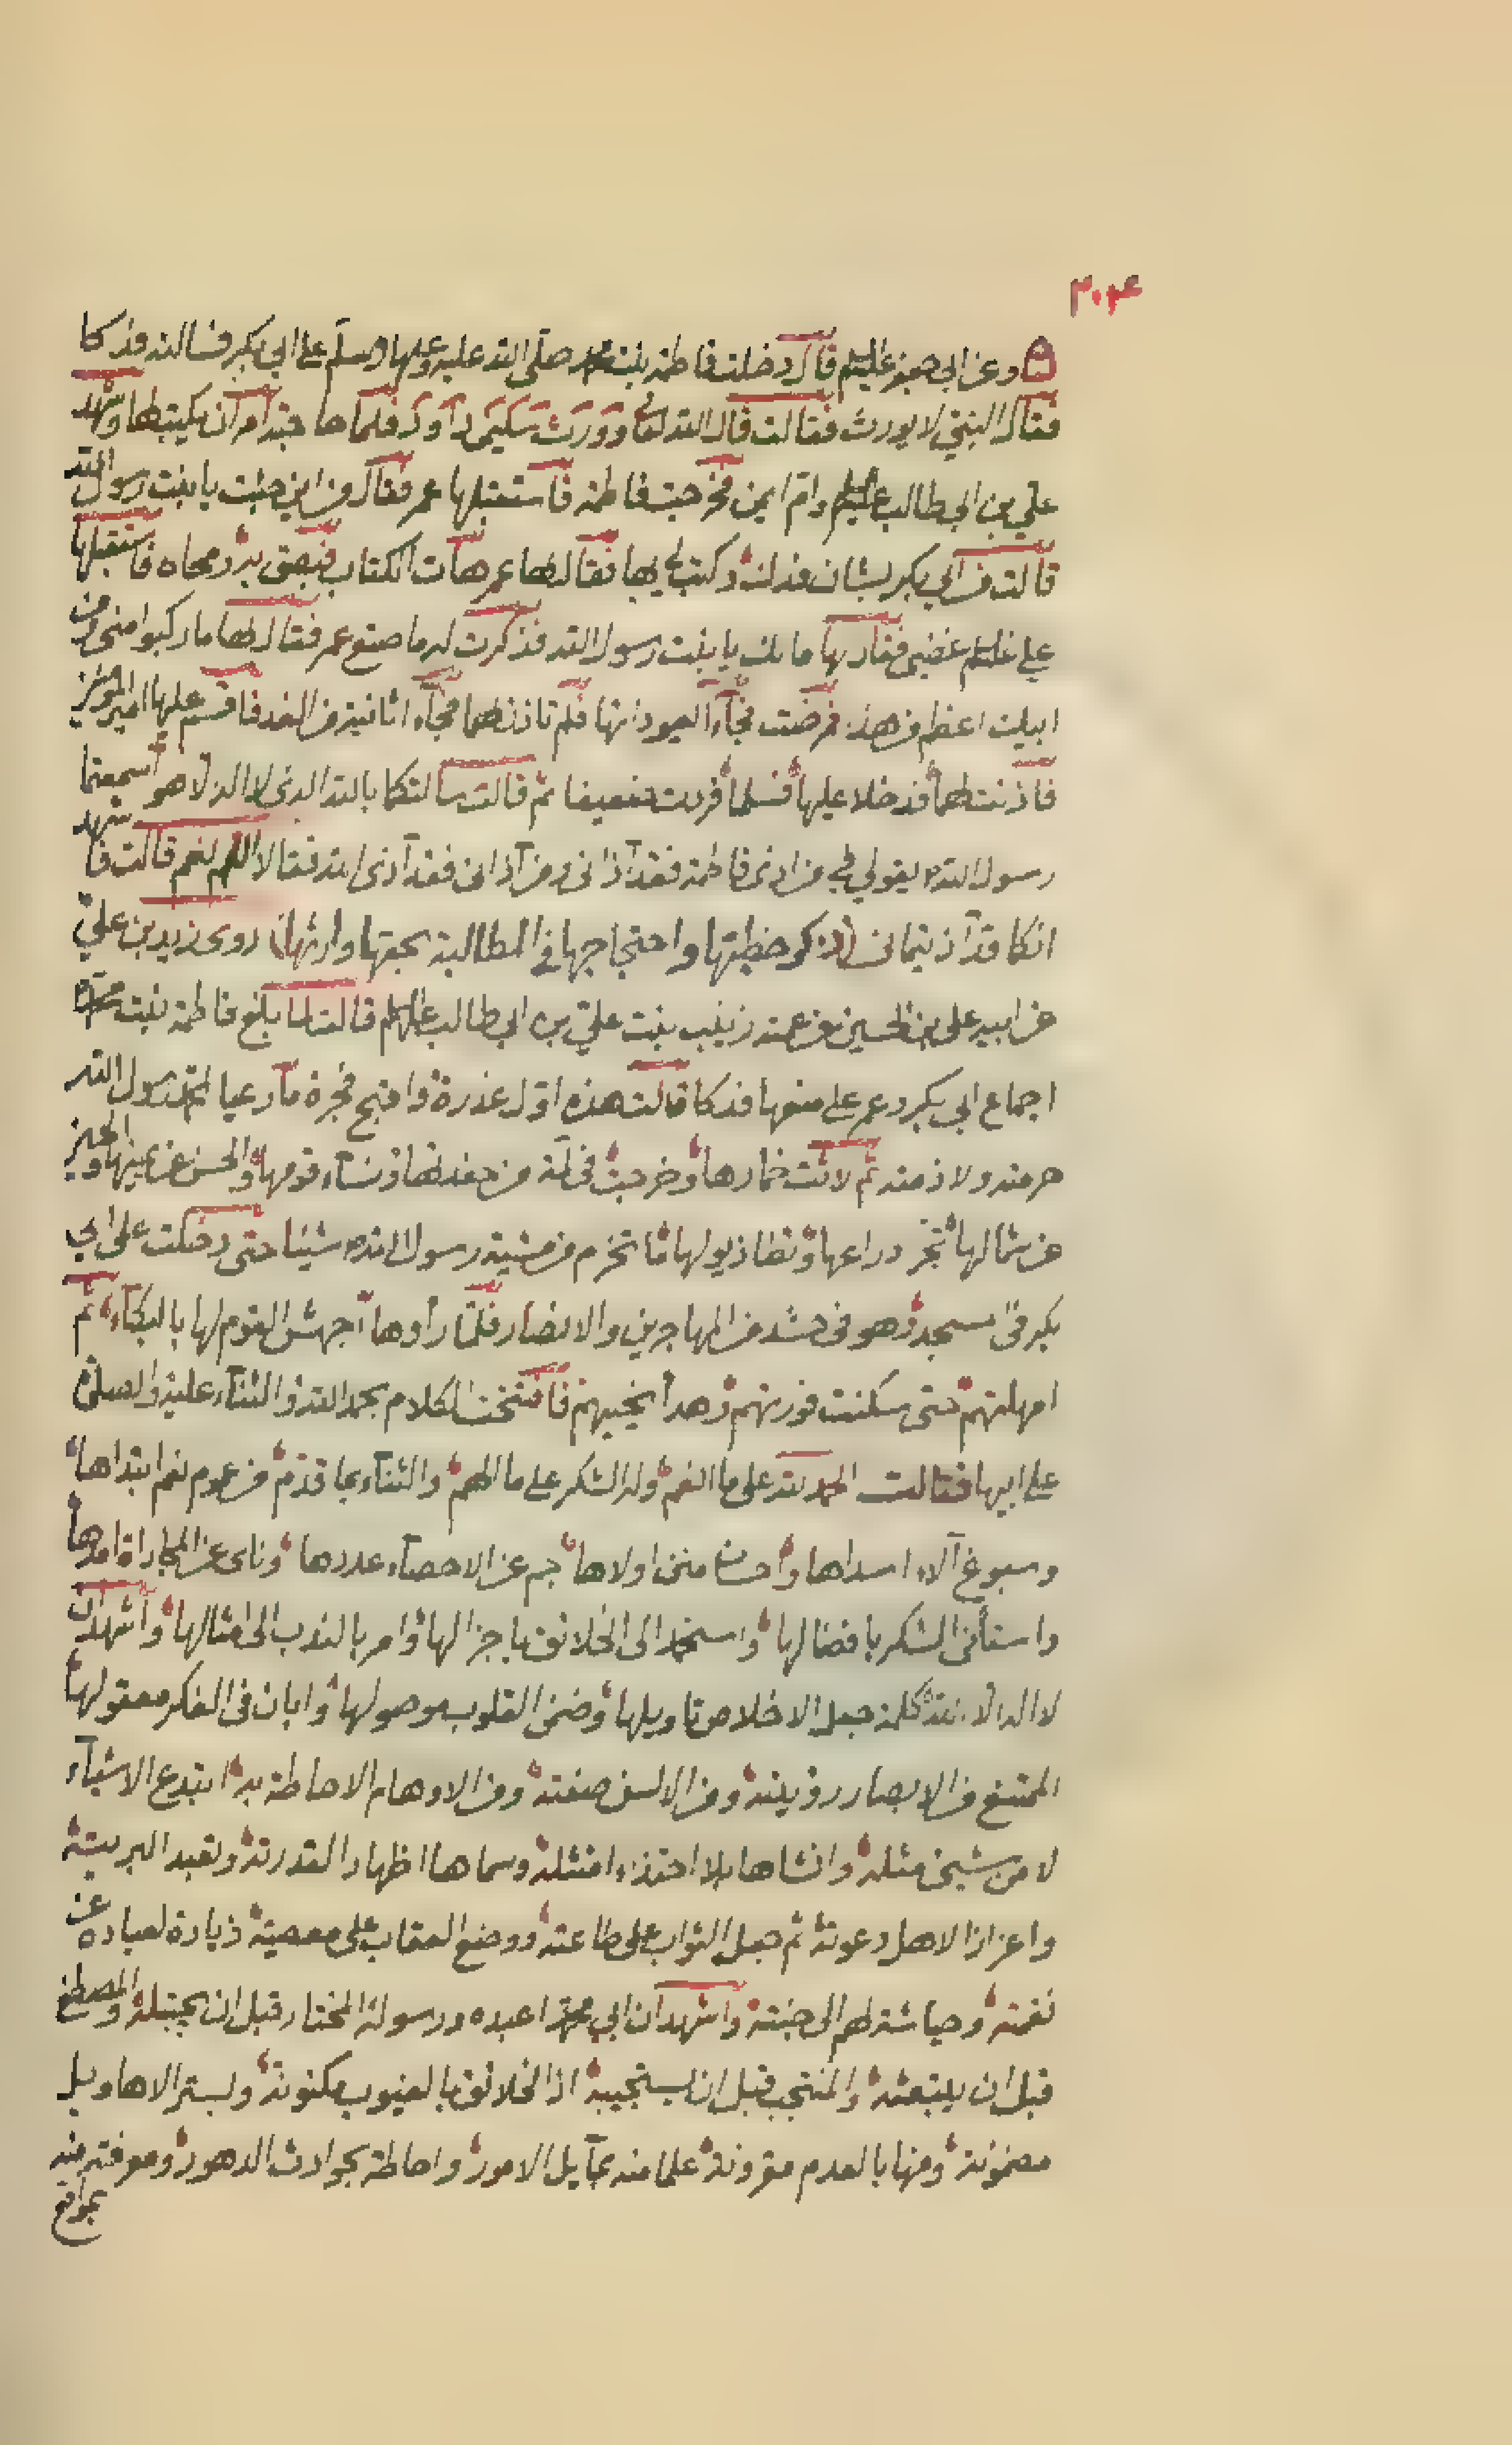 ٣٠٤
وعن ابي جعفر عليه السلم قال دخلت فاطمة بنت محمد صلى الله عليه وعليها وسلم على ابي بكر فسالته فدكا
فقال النبي لا يورث فقالت قال الله تعالى وورث سليمن داود فلما حاجته امر ان يكتب لها وشهد
علي بن ابي طالب عليه السلم وام ايمن فخرجت فاطمة فاستقبلها عمر فقال من اين جئت يا بنت رسول الله
قالت من ابي بكر بشان فدك وكتب لي بها فقال لها عمر هات الكتاب فبصق به ومحاه فاستقبلها
علي عليه السلم غضبى فقال لها ما لك يا بنت رسول الله فذكرت له ما صنع عمر فقال لها ما ركبوا مني ومن
ابيك اعظم من هذا فمرضت فجآءا ليعودانها فلم تاذن لهما فجآءا ثانية من الغد فاقسم عليها امير المؤمنين
فاذنت لهما فدخلا عليها فسلما فردت ضعيفا ثم قالت سالتكما بالله الذى لا اله الا هو أسمعتما
رسول الله يقول في من اذى فاطمة فقد آذانى ومن آذانى فقد آذى الله فقالا اللهم نعم قالت فاشهد
انكما قد آذيتمانى ذكر خطبتها واحتجاجها في المطالبة بحقها وارثها روى زيد بن علي
عن ابيه على بن الحسين عن عمته زينب بنت علي بن ابي طالب عليهم السلم قالت لما بلغ فاطمة بنت محمد
اجماع ابي بكر وعمر على منعها فدكا قالت هذه اول غدرة وافتح فجرة ما رعيا رسول الله
حرمته ولا ذمته ثم لاثت خمارها وخرجت في لمة من حفدتها ونسآء قومها والحسن عن يمينها والحسين
عن شمالها تجر دراعها وتطا ذيولها ما تخرم من مشية رسول الله شيئا حتى دخلت على ابي
بكر في مسجده وهو في حشد من المهاجرين والانصار فلما رأوها اجهش القوم لها بالبكآء ثم
امهلتهم حتى سكنت فورتهم وهدأ نحيبهم فافتتحت الكلام بحمد الله والثنآء عليه والصلوة
على ابيها فقالت الحمد لله على ما انعم وله الشكر على ما الهم والثنآء بما قدم من عموم نعم ابتداها
وسبوغ آلاء اسداها واحسان منن اولاها جم عن الاحصآء عددها وناى عن المجازاة امدها
واستأنى الشكر بافضالها واستحمد الى الخلائق باجزالها وامر بالندب الى امثالها واشهد ان
لا اله الا الله كلمة جعل الاخلاص تاويلها وضمن القلوب موصولها وابان في الفكر معقولها
الممتنع من الابصار رؤيته ومن الالسن صفته ومن الاوهام الاحاطة به ابتدع الاشيآء
لا من شيئ مثله وانشاها بلا احتذاء امثله وسماها اظهارا لقدرته وتعبد البريته
واعزازا لاهل دعوته ثم جعل الثواب على طاعته ووضع العقاب على معصيته ذيادة لعباده عن
نقمته وحياشة لهم الى جنته واشهد ان ابي محمدا عبده ورسوله المختار قبل ان يجتبله والمصطفى
قبل ان يبتعثه والمنتجب قبل ان يستجيبه اذ الخلائق بالغيوب مكنونة وبستر الاهاويل
مضمونة ومنها بالعدم مقرونة علما منه بمآيل الامور واحاطة بحوادث الدهور ومعرفة منه
بمواقع